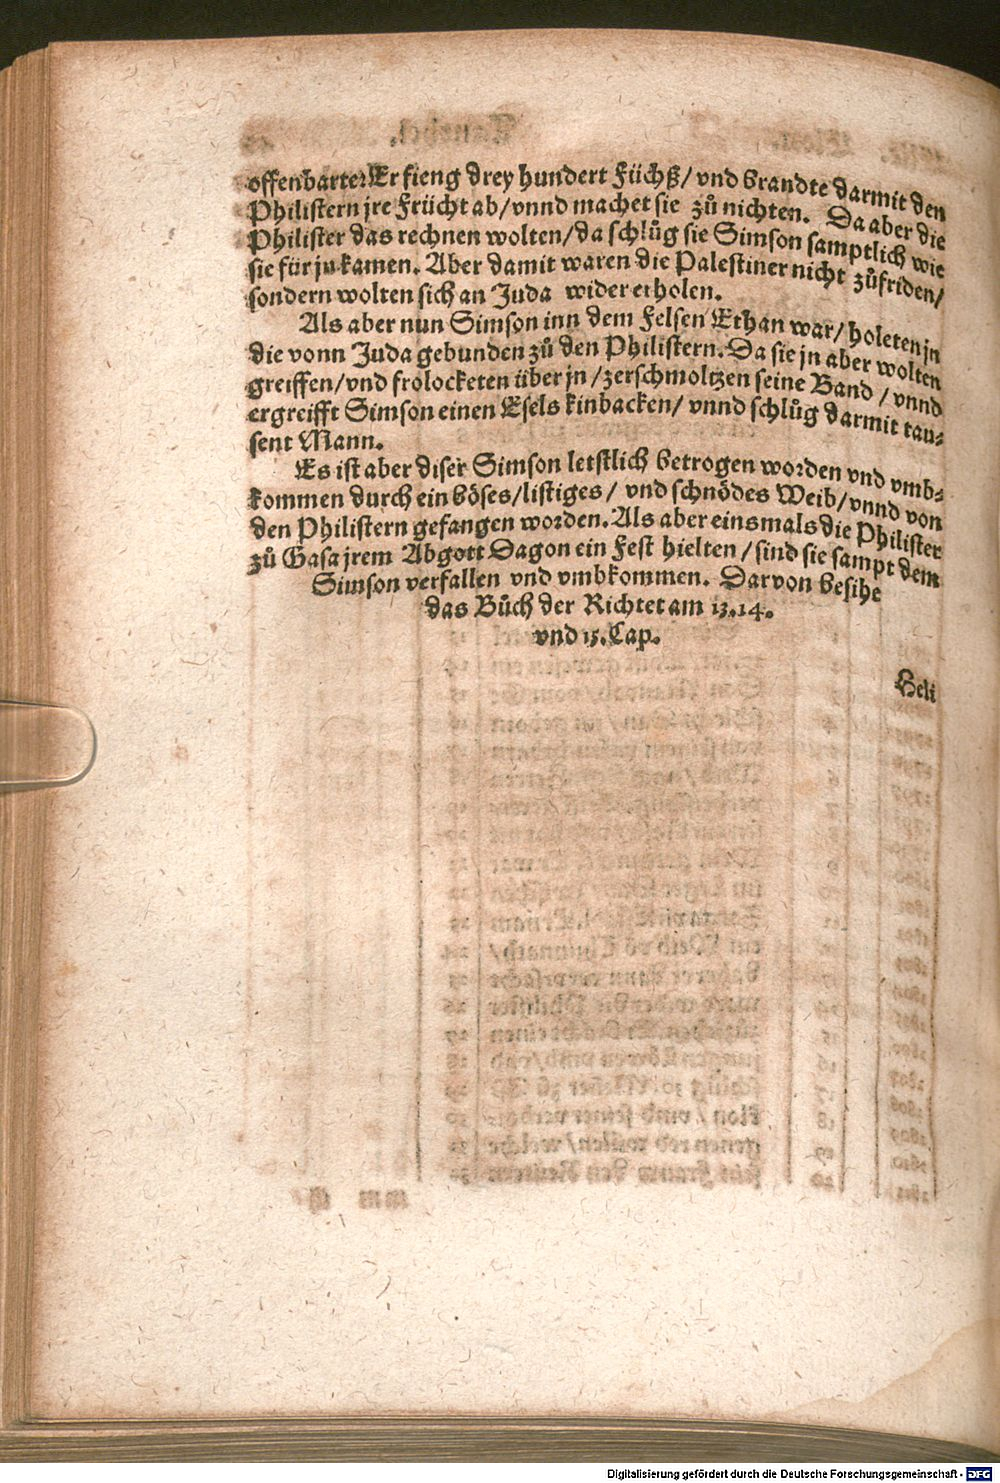 offenbarte. Er fieng drey hundert Füchß/ vnd brandte darmit den
Philistern jre Frücht ab/ vnnd machet sie zů nichten. Da aber die
Philister das rechnen wolten/ da schlůg sie Simson samptlich wie
sie für jn kamen. Aber damit waren die Palestiner nicht zůfriden/
sondern wolten sich an Juda wider erholen.
Als aber nun Simson inn dem Felsen Ethan war/ holeten jn
die vonn Juda gebunden zů den Philistern. Da sie jn aber wolten
greiffen/ vnd frolocketen über jn/ zerschmoltzen seine Band/ vnnd
ergreifft Simson einen Esels kinbacken/ vnnd schlůg darmit tau-
sent Mann.
Es ist aber diser Simson letstlich betrogen worden vnd vmb-
kommen durch ein böses/ listiges/ vnd schnödes Weib/ vnnd von
den Philistern gefangen worden. Als aber einsmals die Philister
zů Gasa jrem Abgott Dagon ein Fest hielten/ sind sie sampt dem
Simson verfallen vnd vmbkommen. Darvon besihe
das Bůch der Richter am 13. 14.
vnd 15. Cap.
Heli
Digitalisierung gefördert durch die Deutsche Forschungsgemeinschaft - DFG